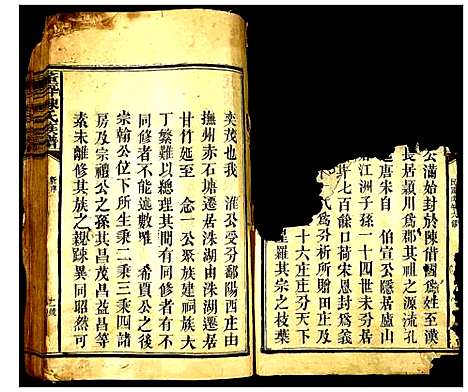 公滿始封於陳借國爲姓至漢
長居潁川爲郡其祖之源流孔
唐宋自 伯宣公隱居廬山
江洲子孫一十四世未分居
七百餘口荷宋恩封爲義
氏爲分析
十六庄庄分天
羅其宗之枝葉
奕茂也我 淮公受分鄱陽西庄由
撫州赤石塘遷居洙湖由洙湖遷居
甘竹延至 念一公聚族建祠族大
丁繁難以總理其間有同修者有不
同修者不能遠數 希賈公之後
崇翰公位下所生乘二乘三乘四等
房及宗禮公之孫其昌茂昌益昌等
素未離修其族之親踈異同昭然可